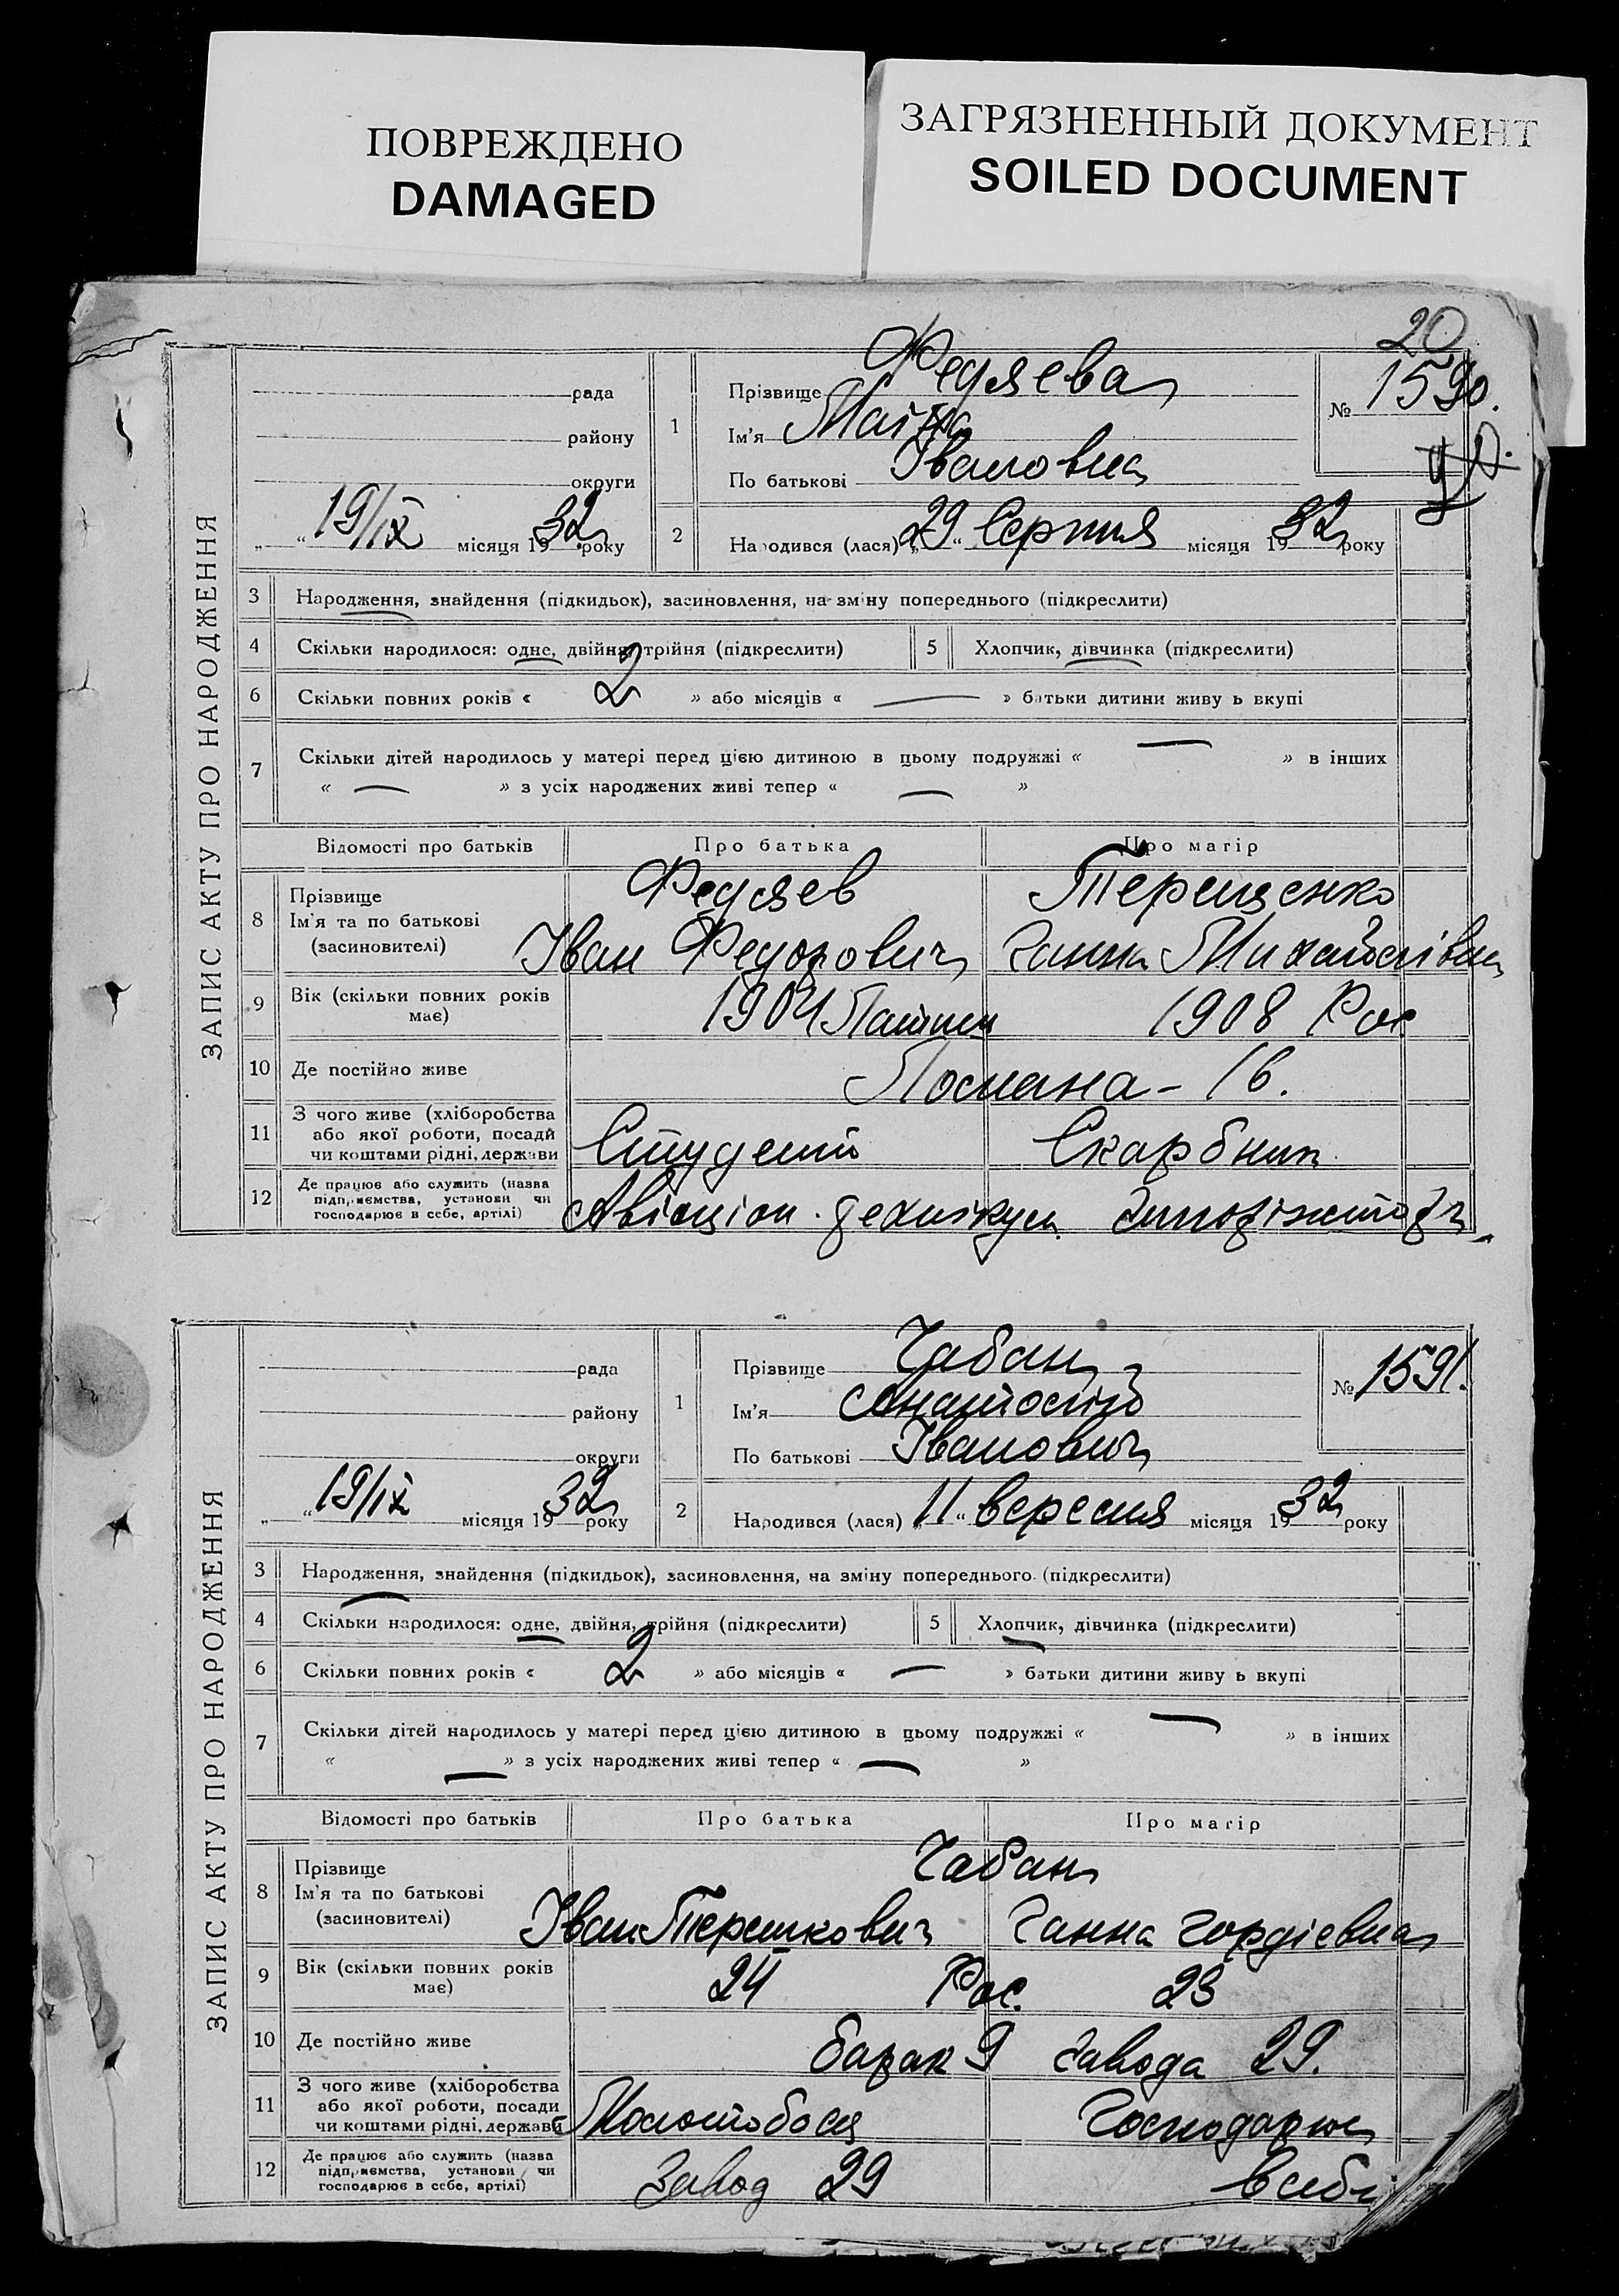 ПОВРЕЖДЕНО
DAMAGED
ЗАГРЯЗНЕННЫЙ ДОКУМЕНТ
SOILED DOCUMENT
20
ЗАПИС АКТУ ПРО НАРОДЖЕННЯ
рада
району
округи
„ “ 19/IX місяця 1932 року
1
Прізвище Федяева
Ім'я Майя
По батькові Івановна
№ 1590.
2
Народився (лася) „29“ Серпня місяця 1932 року
3 Народження, знайдення (підкидьок), засиновлення, на зміну попереднього (підкреслити)
4 Скільки народилося: одне, двійня, трійня (підкреслити)
5 Хлопчик, дівчинка (підкреслити)
6 Скільки повних років « 2 » або місяців « — » батьки дитини живуть вкупі
7 Скільки дітей народилось у матері перед цією дитиною в цьому подружжі « — » в інших
« — » з усіх народжених живі тепер « — »
Відомості про батьків Про батька Про матір
8 Прізвище
Ім'я та по батькові
(засиновителі)
Федяев Терещенко
Іван Федорович Ганна Михайлівна
9 Вік (скільки повних років
має)
1904 1908 Рос
10 Де постійно живе
- 16.
11 З чого живе (хліборобства
або якої роботи, посади
чи коштами рідні, держави
Студент Скарбник
12 Де працює або служить (назва
підприємства, установи чи
господарює в себе, артілі)
Авіаціон. технікум
ЗАПИС АКТУ ПРО НАРОДЖЕННЯ
рада
району
округи
„ “ 19/IX місяця 1932 року
1
Прізвище Чабан
Ім'я Анатолій
По батькові Іванович
№ 1591.
2
Народився (лася) „11“ вересня місяця 1932 року
3 Народження, знайдення (підкидьок), засиновлення, на зміну попереднього (підкреслити)
4 Скільки народилося: одне, двійня, трійня (підкреслити)
5 Хлопчик, дівчинка (підкреслити)
6 Скільки повних років « 2 » або місяців « — » батьки дитини живуть вкупі
7 Скільки дітей народилось у матері перед цією дитиною в цьому подружжі « — » в інших
« — » з усіх народжених живі тепер « — »
Відомості про батьків Про батька Про матір
8 Прізвище
Ім'я та по батькові
(засиновителі)
Чабан
Іван Терешкович Ганна Гордієвна
9 Вік (скільки повних років
має)
24 Рос. 23
10 Де постійно живе
барак 9 завода 29.
11 З чого живе (хліборобства
або якої роботи, посади
чи коштами рідні, держави
Молотобоєц Господарює
12 Де працює або служить (назва
підприємства, установи чи
господарює в себе, артілі)
Завод 29 в себе